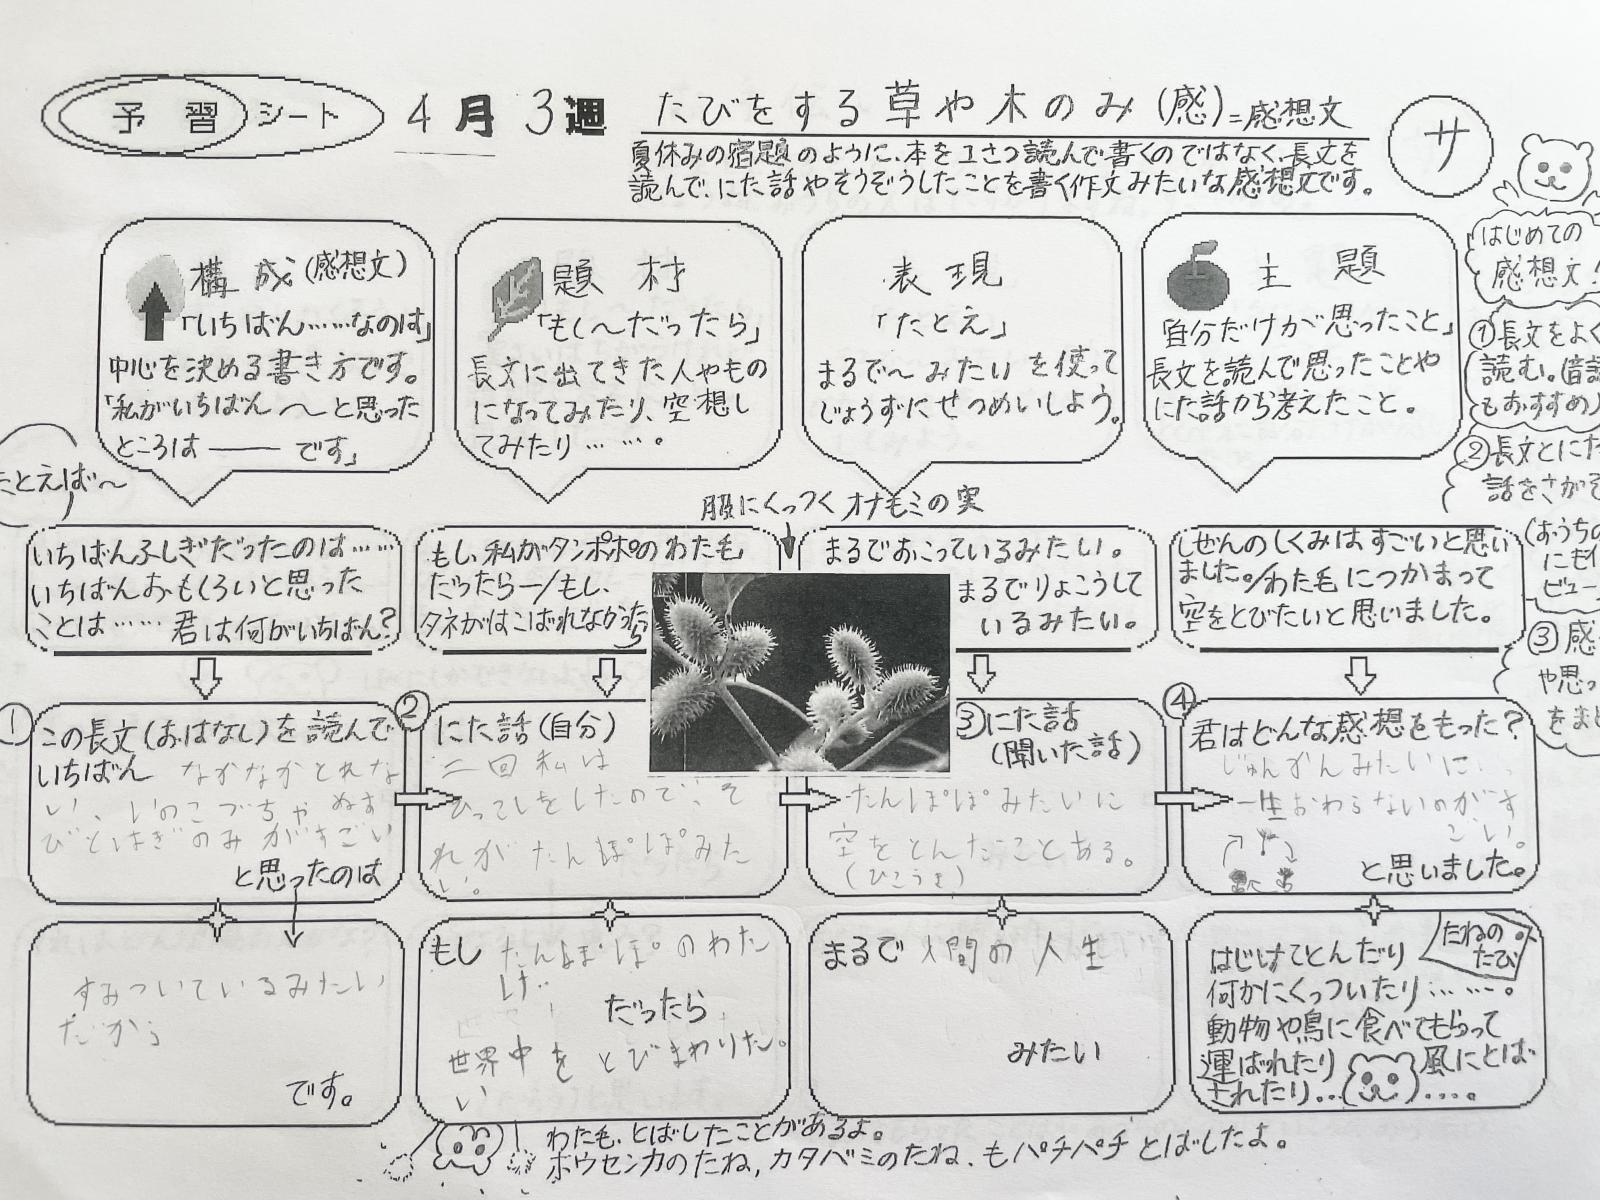 予習シート
4月3週
たびをする草や木のみ(感)=感想文
夏休みの宿題のように、本を1さつ読んで書くのではなく、長文を
読んで、にた話やそうぞうしたことを書く作文みたいな感想文です。
サ
はじめての
感想文!
①長文をよく
読む。(音読
もおすすめ)
②長文とにた
話をさがそ
(おうちの
にもイ
ビュー
③感
や思っ
をまと
構成(感想文)
「いちばん……なのは」
中心を決める書き方です。
「私がいちばん〜と思った
ところは――です」
題材
「もし〜だったら」
長文に出てきた人やもの
になってみたり、空想し
てみたり……。
表現
「たとえ」
まるで〜みたいを使って
じょうずにせつめいしよう。
主題
「自分だけが思ったこと」
長文を読んで思ったことや
にた話から考えたこと。
たとえば〜
服にくっつくオナモミの実
いちばんふしぎだったのは……
いちばんおもしろいと思った
ことは……君は何がいちばん?
もし、私がタンポポのわた毛
だったら―/もし、
タネがはこばれなかったら
まるでおこっているみたい。
まるでりょこうして
いるみたい。
しぜんのしくみはすごいと思い
ました。/わた毛につかまって
空をとびたいと思いました。
①
この長文(おはなし)を読んで
いちばん なかなかとれな
い、いのこづちや ぬす
びとはぎのみ がすごい
と思ったのは
②
にた話(自分)
二回私は
ひっこしをしたので、そ
れがたんぽぽみた
い。
③にた話
(聞いた話)
たんぽぽみたいに
空をとんだことある。
(ひこうき)
④
君はどんな感想をもった?
じゅんかんみたいに、
一生おわらないのがす
ごい。
と思いました。
すみついているみたい
だから
です。
もし たんぽぽのわた
げ
だったら
世界中をとびまわりた
い
まるで 人間の人生
みたい
たねの
たび
はじけてとんだり
何かにくっついたり……。
動物や鳥に食べてもらって
運ばれたり 風にとば
されたり…
わた毛、とばしたことがあるよ。
ホウセンカのたね、カタバミのたね、もパチパチとばしたよ。